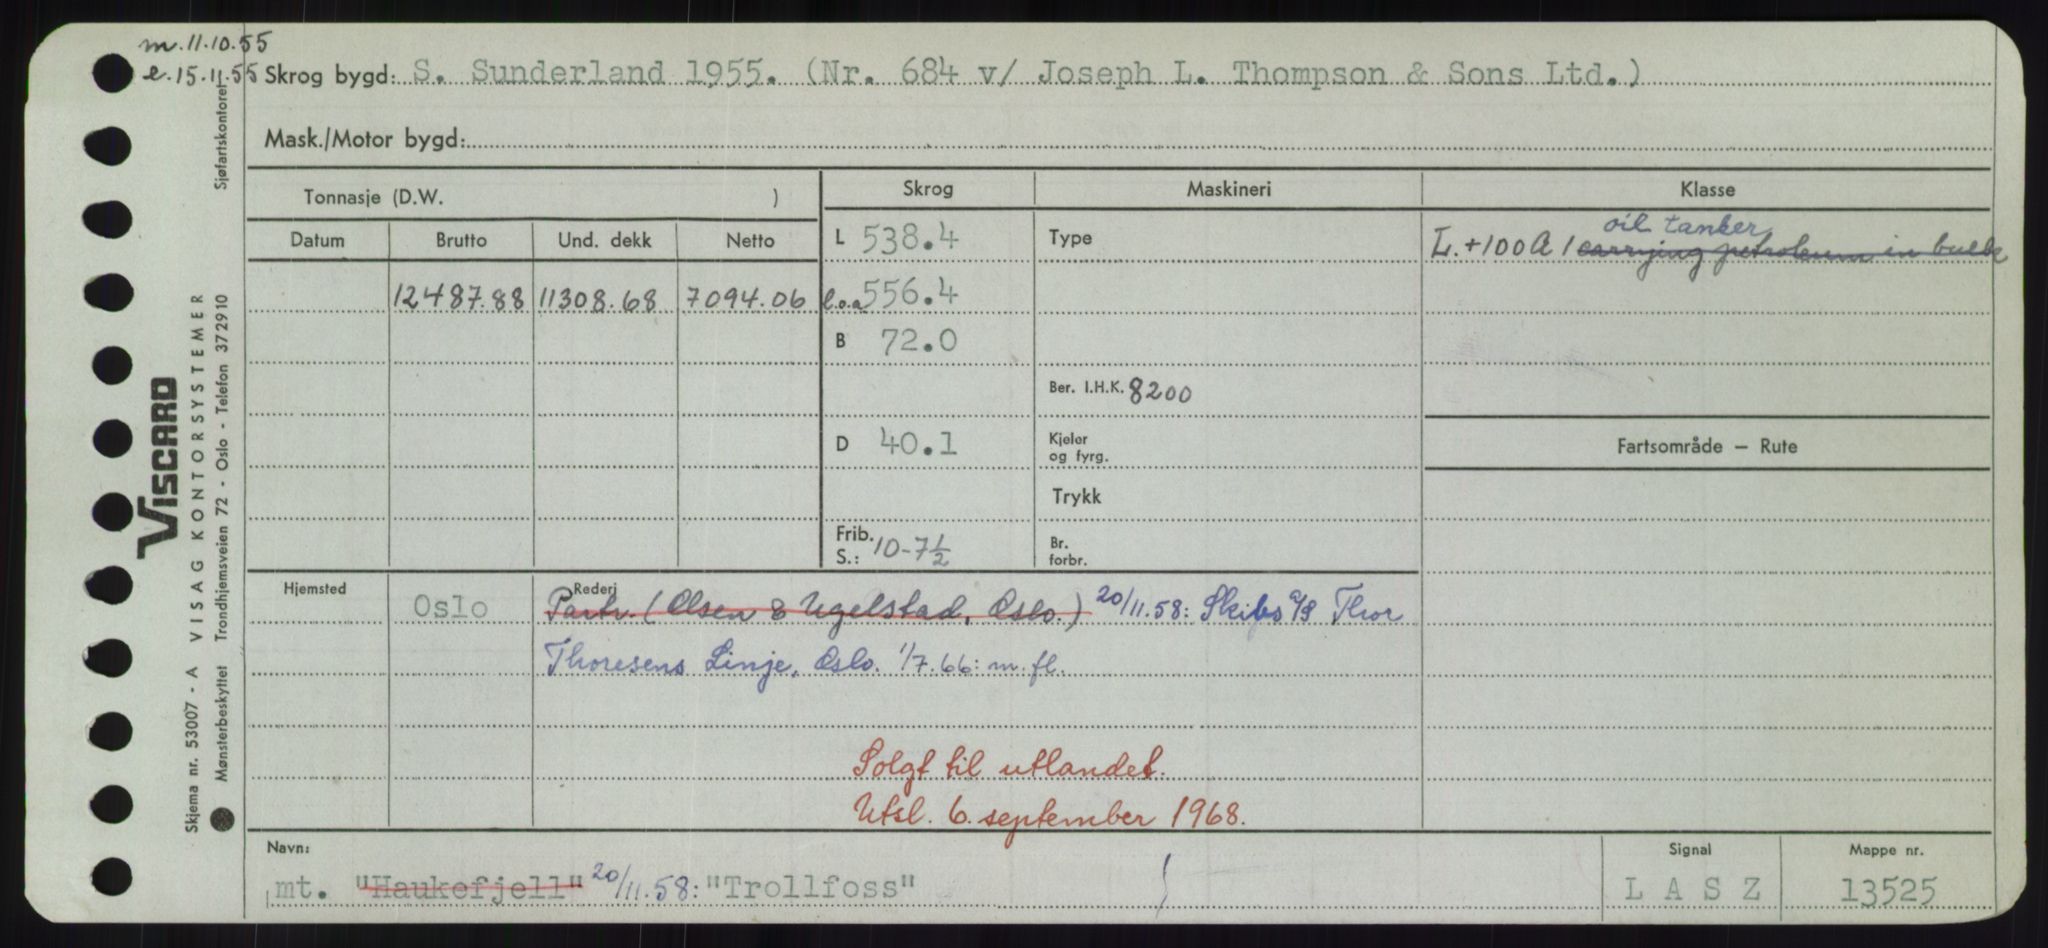 m. 11.10.55
e. 15.11.55 Skrog bygd: S. Sunderland 1955. (Nr. 684 v/ Joseph L. Thompson & Sons Ltd.)
Mask./Motor bygd:
Tonnasje (D.W. )
Datum Brutto Und. dekk Netto
12487.88 11308.68 7094.06
Skrog
L 538.4
l.o.a 556.4
B 72.0
D 40.1
Frib.
S.: 10-7½
Maskineri
Type
Ber. I.H.K. 8200
Kjeler
og fyrg.
Trykk
Br.
forbr.
Klasse
oil tanker
L. +100A1 carrying petroleum in bulk
Fartsområde — Rute
Hjemsted Oslo
Rederi
Partr. (Olsen & Ugelstad, Oslo.) 20/11.58: Skibs a/s Thor
Thoresens Linje, Oslo. 1/7.66: m. fl.
Solgt til utlandet.
Utsl. 6. september 1968.
Navn:
mt. "Haukefjell" 20/11.58: "Trollfoss"
Signal
L A S Z
Mappe nr.
13525
VISCARD
Skjema nr. 53007 - A VISAG KONTORSYSTEMER
Mønsterbeskyttet Trondhjemsveien 72 - Oslo - Telefon 372910 Sjøfartskontoret